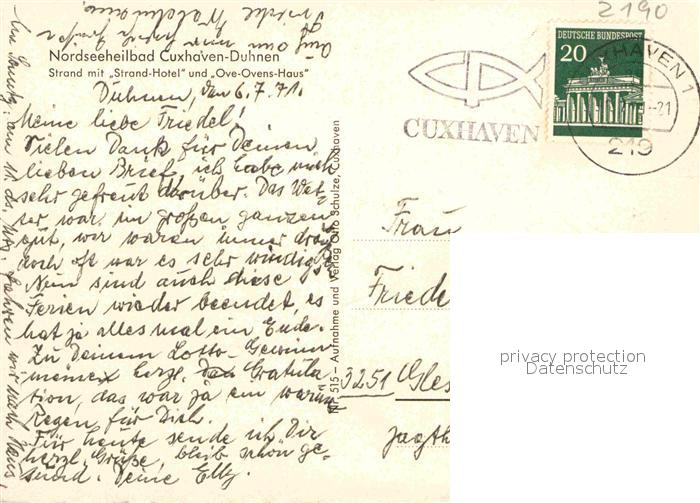 2190
Nordseeheilbad Cuxhaven-Duhnen
Strand mit „Strand-Hotel" und „Ove-Ovens-Haus"
DEUTSCHE BUNDESPOST
20
CUXHAVEN
CUXHAVEN 1
-21
219
Duhnen, den 6.7.71.
Meine liebe Friedel!
Vielen Dank für Deinen
lieben Brief, ich habe mich
sehr gefreut darüber. Das Wet-
ter war im großen ganzen
gut, wir waren immer drau-
doch oft war es sehr windig.
Nun sind auch diese
Ferien wieder beendet, es
hat ja alles mal ein Ende.
Zu Deinem Lotto-Gewinn
meine herzl. Gratula-
tion, das war ja ein warmer
Regen für Dich.
Für heute sende ich Dir
herzl. Grüße, bleib schön ge-
sund. Deine Elly.
Am Sonntag, am 11. ds. Mts. fahren wir nach Haus
Nr. 515 - Aufnahme und Verlag Otto Schulze, Cuxhaven
Frau
Friede
3251 Gles
Jagth
privacy protection
Datenschutz